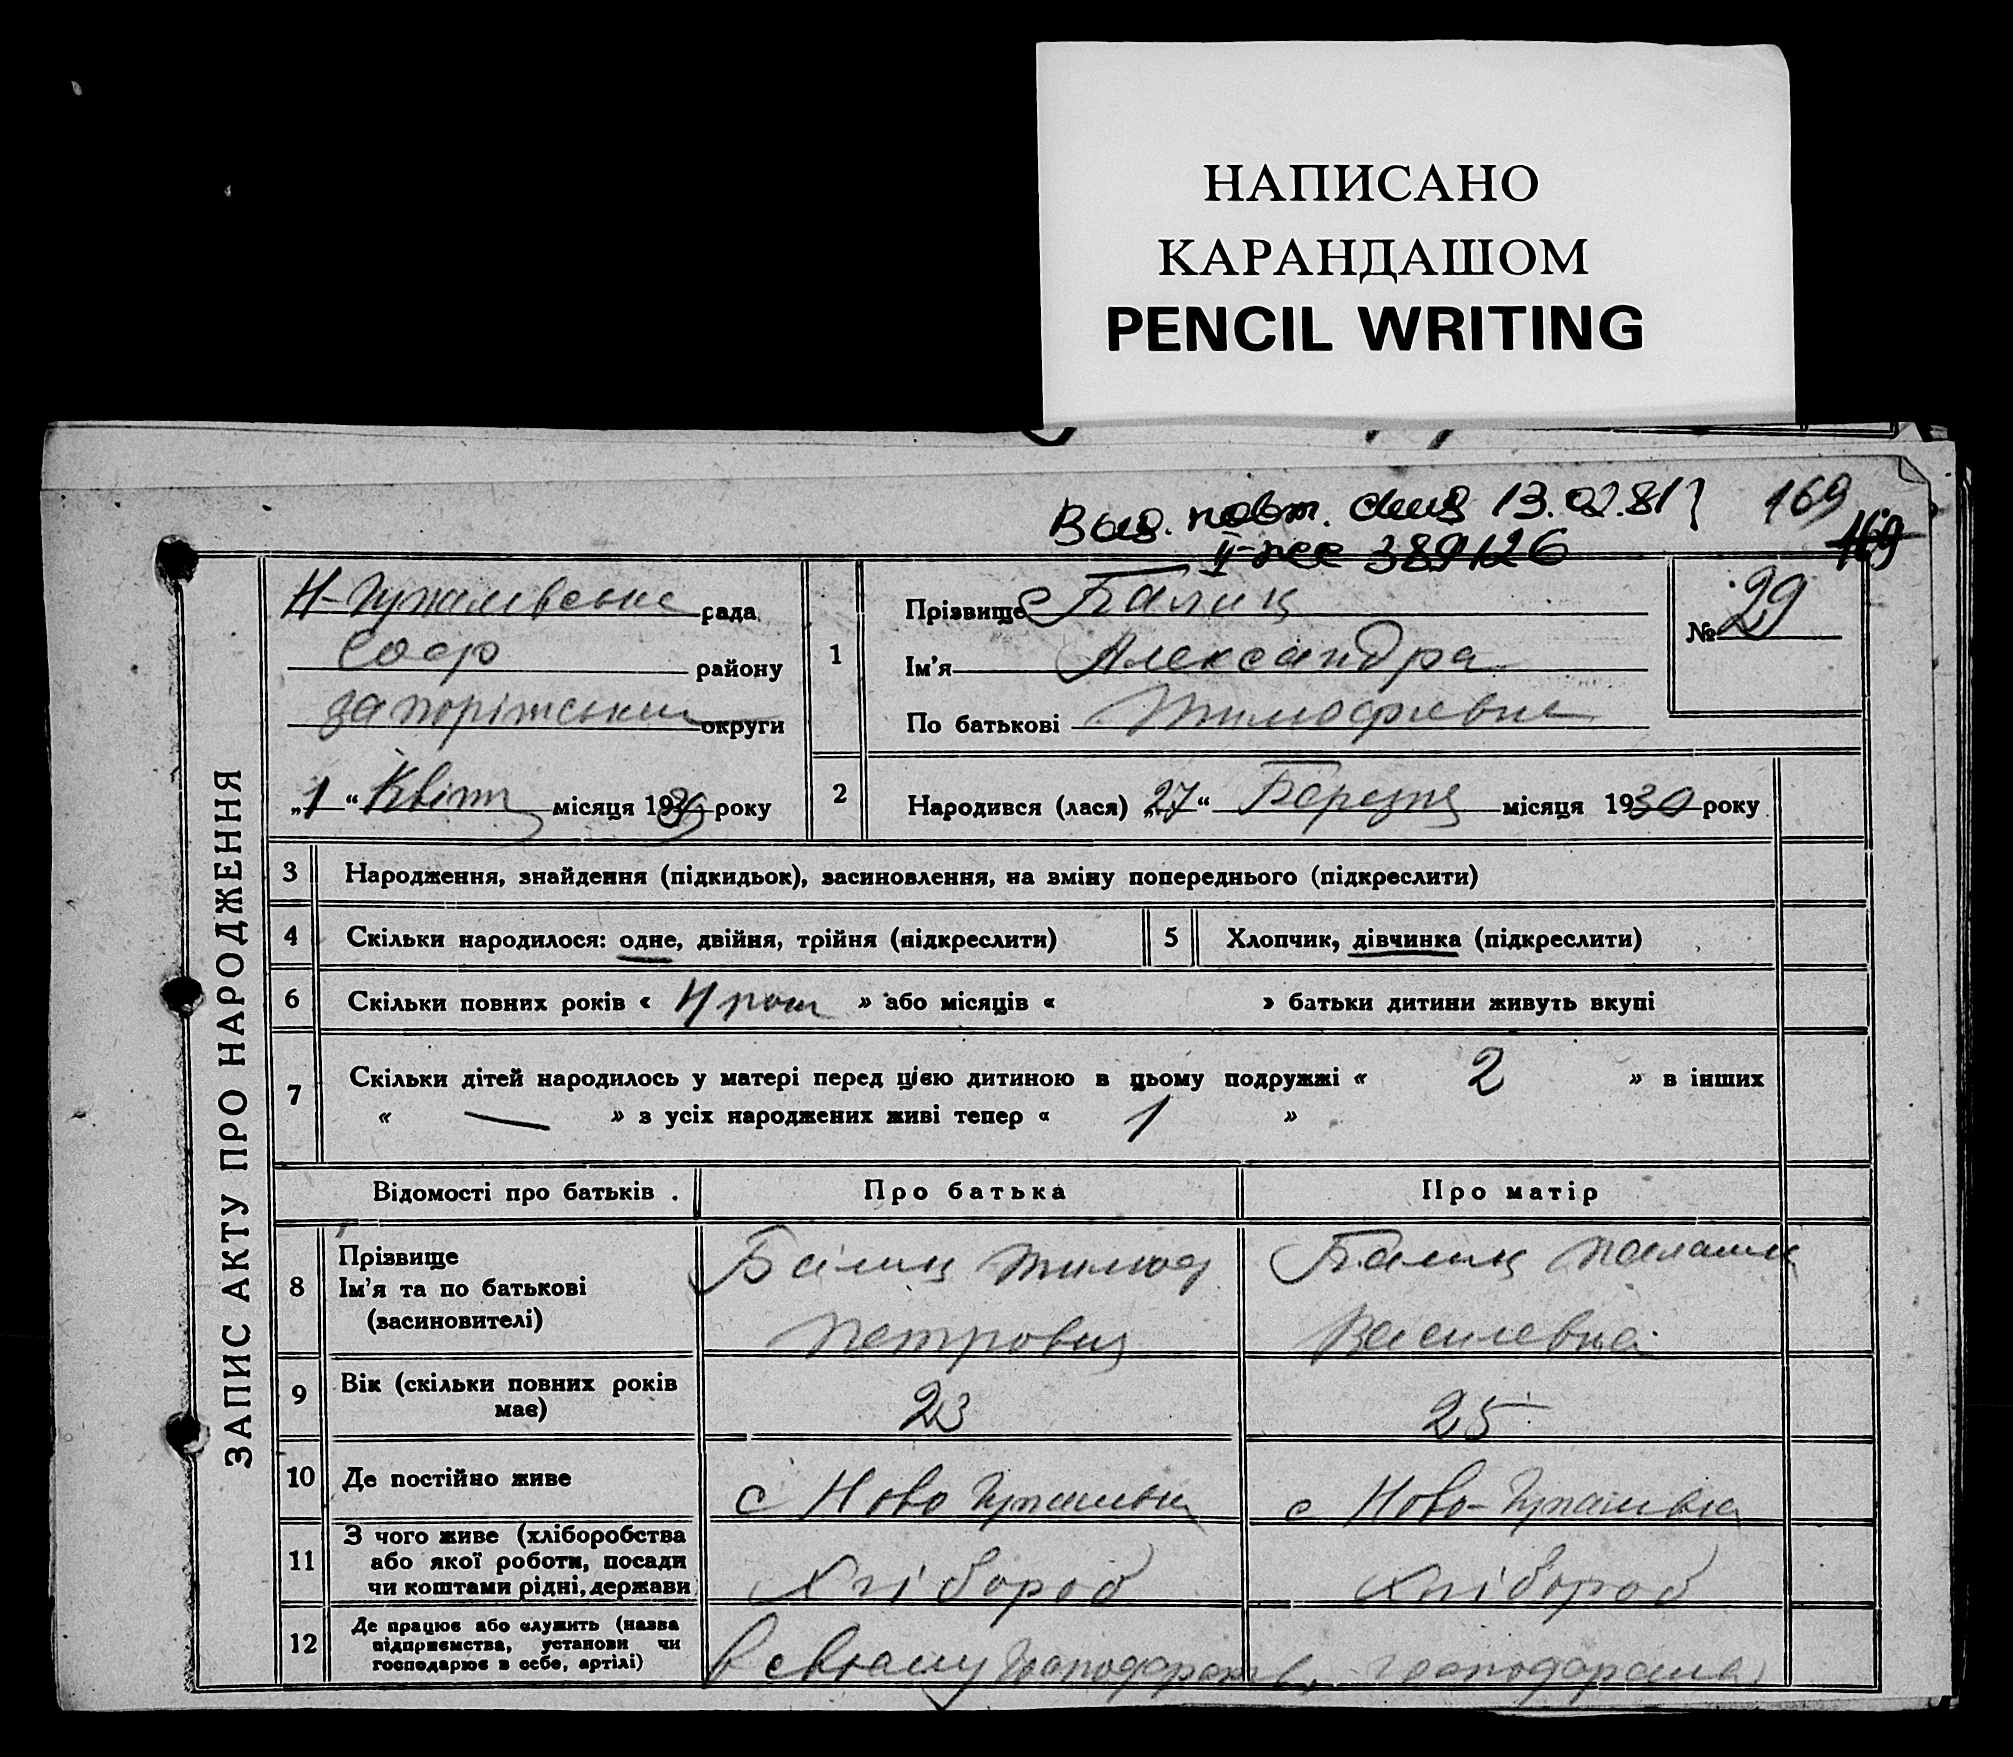 НАПИСАНО
КАРАНДАШОМ
PENCIL WRITING
Выд. повт. 13.02.81г 169
II-жс 389126 169
ЗАПИС АКТУ ПРО НАРОДЖЕННЯ
рада
району
Запоріжської округи
„1“ Квітн місяця 1930 року
1
Прізвище Балиц
Ім'я Александра
По батькові Тимофievна
№ 29
2 Народився (лася) „27“ Березня місяця 1930 року
3 Народження, знайдення (підкидьок), засиновлення, на зміну попереднього (підкреслити)
4 Скільки народилося: одне, двійня, трійня (підкреслити) 5 Хлопчик, дівчинка (підкреслити)
6 Скільки повних років « 4 рок » або місяців « » батьки дитини живуть вкупі
7 Скільки дітей народилось у матері перед цією дитиною в цьому подружжі « 2 » в інших
« — » з усіх народжених живі тепер « 1 »
Відомості про батьків. Про батька Про матір
8 Прізвище
Ім'я та по батькові
(васиновителі)
Балиц Тимоф
Петрович
Балиц
Василевна
9 Вік (скільки повних років
має) 23 25
10 Де постійно живе с Ново с Ново-
11 З чого живе (хліборобства
або якої роботи, посади
чи коштами рідні, держави
Хлібороб Хлібороб
12 Де працює або служить (назва
підприємства, установи чи
господарює в себе, артілі)
В свюому господарстві